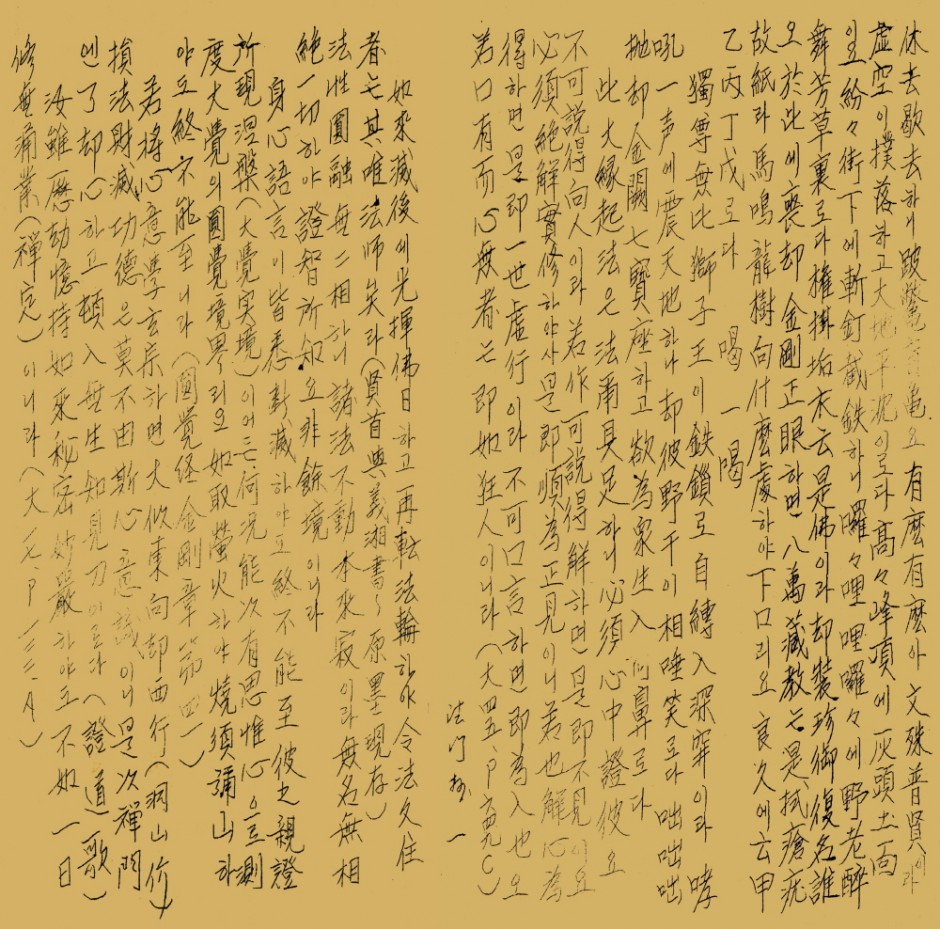 休去歇去하니 跛鼈盲龜요 有麽有麽아 文殊普賢이라
虛空이 撲落하고 大地平沈이로다 高々峰頂에 灰頭土面
이요 紛々街下에 斬釘截鉄하니 囉々哩哩囉々에 野老醉
舞芳草裏로다 權掛垢衣云是佛이라 却裝珍御復名誰
오 於此에 喪却金剛正眼하면 八萬藏教는 是拭瘡疣
故紙라 馬鳴龍樹 向什麽處하야 下口리요 良久에 云甲
乙丙丁戊로다 喝 一喝
獨尊無比獅子王이 鉄鎖로 自縛入深穽이라 哮
吼一声에 震天地하나 却彼野干이 相唾笑로다 咄咄
抛却金闕七寶座하고 欲為衆生入 鼻로다
此大縁起法은 法甬具足하니 必須心中證彼요
不可說得向人이라 若作可說得解하면 是即不見이요
必須絶解實修하야사 是即順為正見이니 若也解心為
得하면 是即一世虛行이라 不可口言하면 即為入也오
若口有而心無者는 即如狂人이니라 (大四五, P C)
法门 一
如來滅後에 光揮佛日하고 再転法輪하야 令法久住
者는 其唯法師矣라 (賢首與義湘書~原墨現存)
法性圓融無二相하니 諸法不動本來寂이라 無名無相
絶一切하야 證智所知요 非餘境이니라
身心語言이 皆悉断滅하야도 終不能至彼之親證
所現涅槃(大覺実境)이어든 何況能次有思惟心으로 測
度大覺의 圓覺境界리오 如取螢火하야 燒須彌山하
야도 終不能至니라 (圓覺経金剛章第四)
若將心意學玄宗하면 大似東向却西行(洞山价)
損法財滅功德은 莫不由斯心意識이니 是次禪門
엔 了却心하고 頓入無生知見刀이로다 (證道歌)
汝雖歴劫憶持如來秘密妙嚴하야도 不如一日
修無漏業(禪定)이니라 (大一七, P 一三二, A)